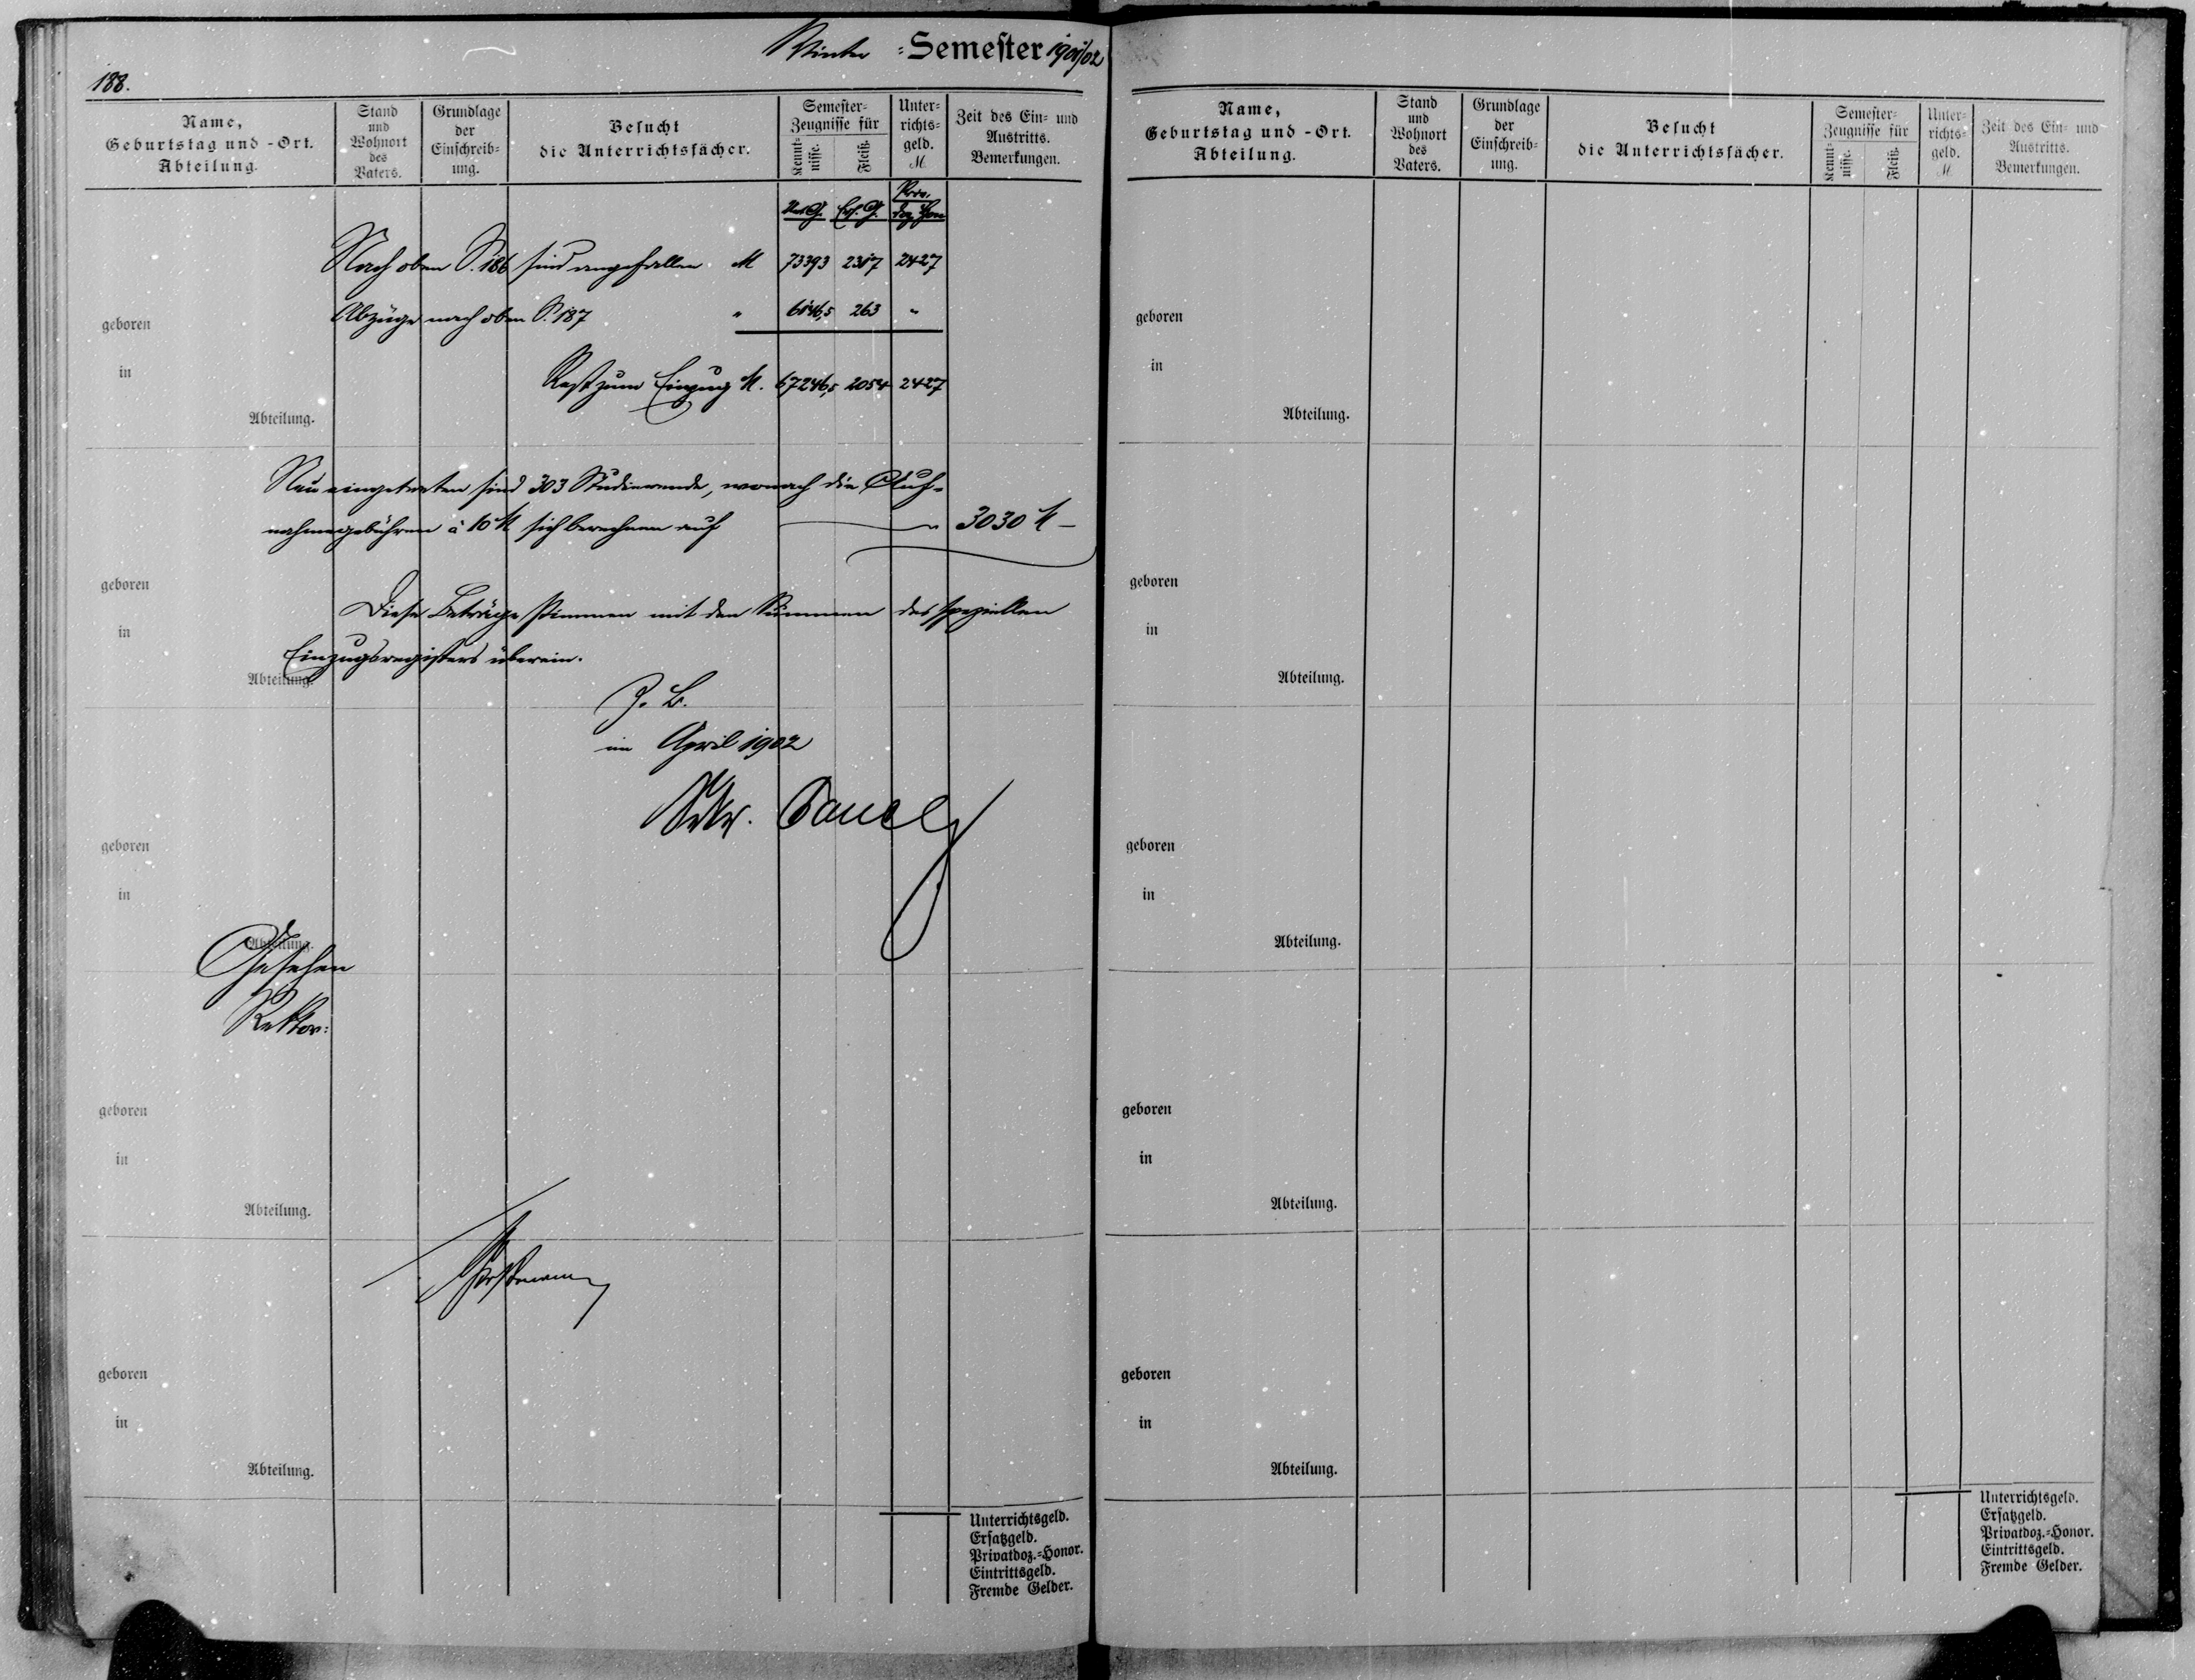 Winter =Semester 1901/02
188.
Name,
Geburtstag und -Ort.
Abteilung.
Stand
und
Wohnort
des
Vaters.
Grundlage
der
Einschreib-
ung.
Besucht
die Unterrichtsfächer.
Semester-
Zeugnisse für
Kennt-
nisse.
Fleiß.
Unter-
richts-
geld.
M
Zeit des Ein- und
Austritts.
Bemerkungen.
Unt.G. Ers.G. Priv.
Doz. Hon
Nach oben S. 186 sind angefallen M 73393 2317 2427
Abzüge nach oben S. 187 " 6146,5 263 "
geboren
Rest zum Einzug M. 67246,5 2054 2427
in
Abteilung.
Neu eingetreten sind 303 Studierende, wonach die Auf-
nahmegebühren à 10 M sich berechnen auf 3030 M –
geboren
Diese Beträge stimmen mit den Summen des speziellen
in
Einzugsregisters überein.
Abteilung.
Z. B.
im April 1902
geboren
in
Abteilung.
Gesehen
Rektor:
geboren
in
Abteilung.
geboren
in
Abteilung.
Unterrichtsgeld.
Ersatzgeld.
Privatdoz.-Honor.
Eintrittsgeld.
Fremde Gelder.
Name,
Geburtstag und -Ort.
Abteilung.
Stand
und
Wohnort
des
Vaters.
Grundlage
der
Einschreib-
ung.
Besucht
die Unterrichtsfächer.
Semester-
Zeugnisse für
Kennt-
nisse.
Fleiß.
Unter-
richts-
geld.
M
Zeit des Ein- und
Austritts.
Bemerkungen.
geboren
in
Abteilung.
geboren
in
Abteilung.
geboren
in
Abteilung.
geboren
in
Abteilung.
geboren
in
Abteilung.
Unterrichtsgeld.
Ersatzgeld.
Privatdoz.-Honor.
Eintrittsgeld.
Fremde Gelder.